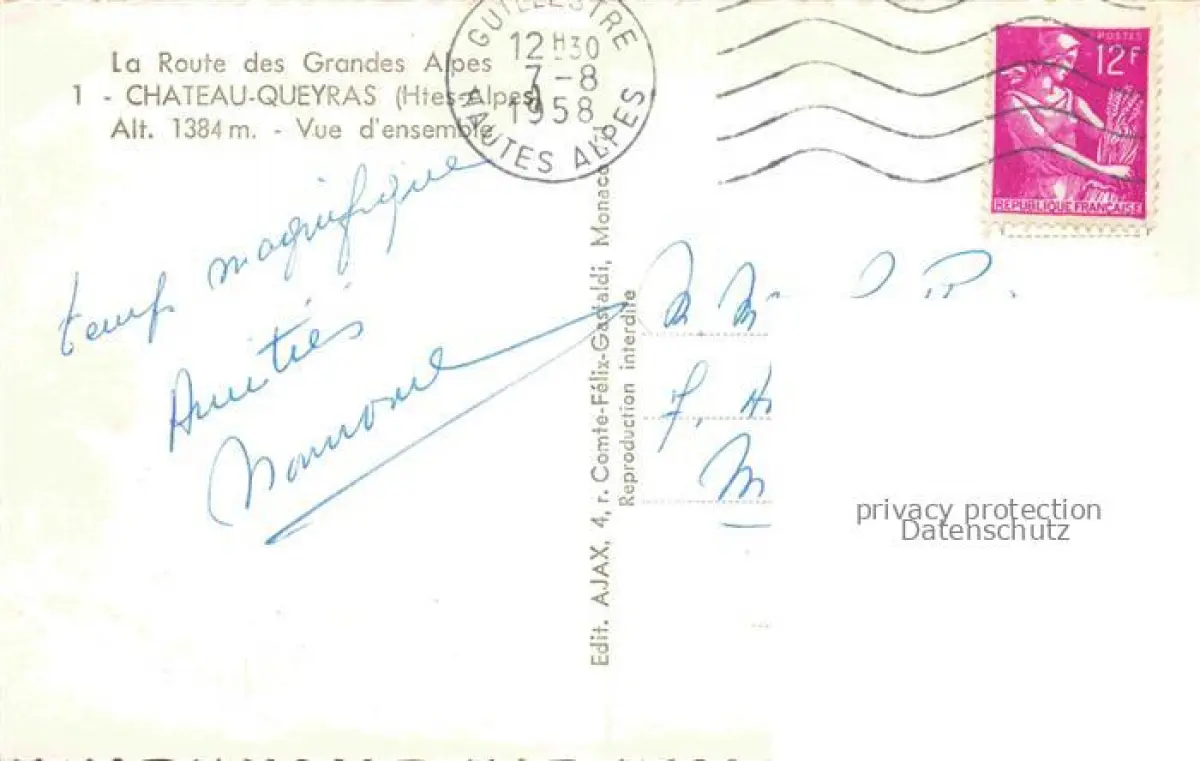 La Route des Grandes Alpes
1 - CHATEAU-QUEYRAS (Htes-Alpes)
Alt. 1384 m. - Vue d'ensemble
GUILLESTRE
12 H 30
7 - 8
1958
HAUTES ALPES
POSTES
12F
REPUBLIQUE FRANÇAISE
temps magnifique
Amitiés
Edit. AJAX, 4, r. Comte-Félix-Gastaldi, Monaco
Reproduction interdite
M M
7,
M
privacy protection
Datenschutz